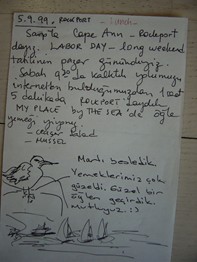 5.9.99. ROCKPORT - lunch -
Cape Ann - Rockport
dayız. LABOR DAY - long weekend
tatilinin pazar günündeyiz.
Sabah 9 da kalktık
internetten bulduğumuzdan 1 saat
5 dakikada ROCKPORT taydık
MY PLACE by THE SEA 'de öğle
yemeği yiyoruz.
- Ceasar Salad
- MUSSEL
Martı besledik.
Yemeklerimiz çok
güzeldi. Güzel bir
öğlen geçirdik.
Mutluyuz. :)